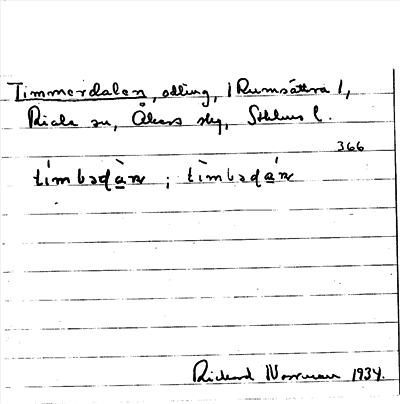 Timmerdalen, odling, (Rumsättra),
Riala sn, Åkers skg, Sthlms l.
366
tímbədàn ; tìmbədán
Rickard Norrman 1934.